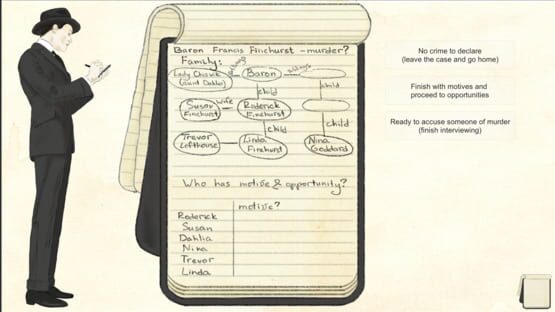 Baron Francis Finchurst - murder?
Family:
Lady Chiswick siblings Baron siblings
(aunt Dahlia)
child child
Susan wife Roderick
Finchurst Finchurst
child child
Trevor Linda Nina
Lofthouse Finchurst Goddard
Who has motive & opportunity?
motive?
Roderick
Susan
Dahlia
Nina
Trevor
Linda
No crime to declare
(leave the case and go home)
Finish with motives and
proceed to opportunities
Ready to accuse someone of murder
(finish interviewing)